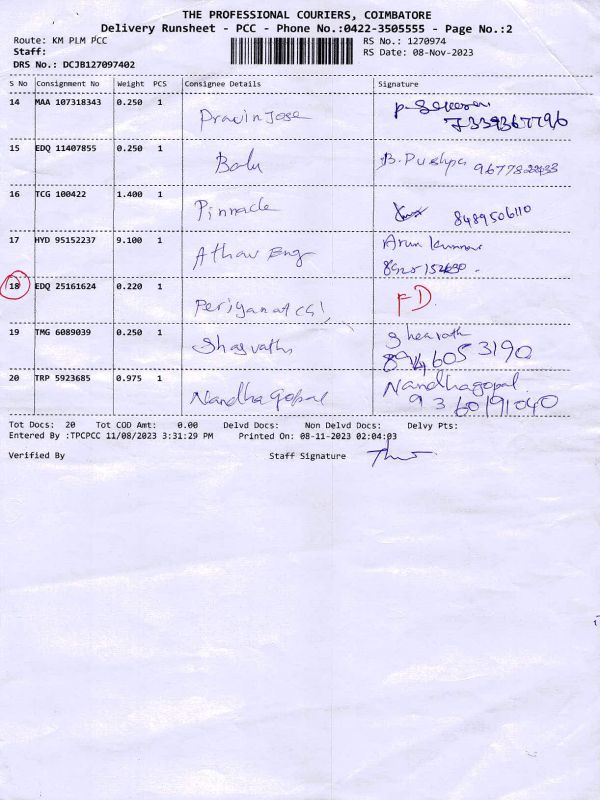 THE PROFESSIONAL COURIERS, COIMBATORE
Delivery Runsheet - PCC - Phone No.:0422-3505555 - Page No.:2
Route: KM PLM PCC RS No.: 1270974
Staff: RS Date: 08-Nov-2023
DRS No.: DCJB127097402
S No Consignment No Weight PCS Consignee Details Signature
14 MAA 107318343 0.250 1 Pravin Jose
15 EDQ 11407855 0.250 1 Balu B. Pushpa
16 TCG 100422 1.400 1 Pinnacle 8489506110
17 HYD 95152237 9.100 1 Athav Eng Arun kumar
18 EDQ 25161624 0.220 1 FD.
19 TMG 6089039 0.250 1
20 TRP 5923685 0.975 1 Nandha Gopal Nandhagopal
9360191040
Tot Docs: 20 Tot COD Amt: 0.00 Delvd Docs: Non Delvd Docs: Delvy Pts:
Entered By :TPCPCC 11/08/2023 3:31:29 PM Printed On: 08-11-2023 02:04:03
Verified By Staff Signature